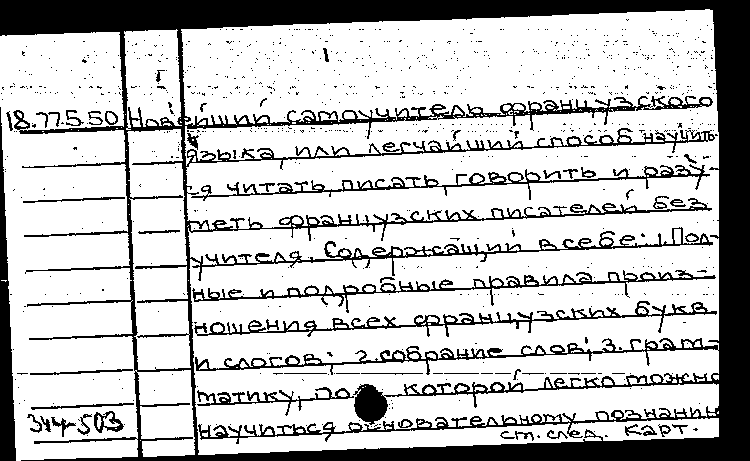 18.77.5.50 Новейший самоучитель французского
языка, или легчайший способ научить-
ся читать, писать, говорить и разу-
меть французских писателей без
учителя. Содержащий в себе: 1. Пол-
ные и подробные правила произ-
ношения всех французских букв
и слогов; 2. собрание слов; 3. грам-
матику, по которой легко можно
научиться основательному познанию
344-503
см. след. карт.